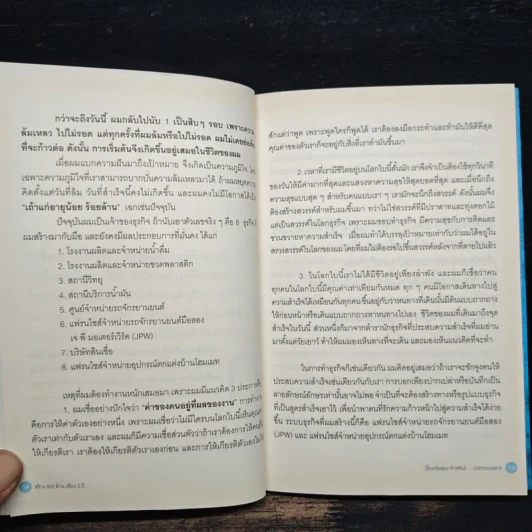 กว่าจะถึงวันนี้ ผมกลับไปนับ 1 เป็นสิบๆ รอบ เพราะความ
ล้มเหลว ไปไม่รอด แต่ทุกครั้งที่ผมล้มหรือไปไม่รอด ผมไม่เคยย่อท้อ
ที่จะก้าวต่อ ดังนั้น การเริ่มต้นจึงเกิดขึ้นอยู่เสมอในชีวิตของผม
เมื่อผมแบกความฝันมาถึงเป้าหมาย จึงเกิดเป็นความภูมิใจ โดย
เฉพาะความภูมิใจที่เราสามารถบากบั่นความล้มเหลวมาได้ ถ้าผมหยุดความ
คิดตั้งแต่วันที่ล้ม วันที่สำเร็จนี้คงไม่เกิดขึ้น และผมคงไม่มีโอกาสได้เป็น
"เถ้าแก่อายุน้อย ร้อยล้าน" เฉกเช่นปัจจุบัน
ปัจจุบันผมเป็นเจ้าของธุรกิจ ถ้านับเอาตัวเลขจริง ๆ คือ 8 ธุรกิจ ที่
ผมสร้างมากับมือ และยังคงมีผลประกอบการที่มั่นคง ได้แก่
1. โรงงานผลิตและจำหน่ายน้ำดื่ม
2. โรงงานผลิตและจำหน่ายขวดพลาสติก
3. สถานีวิทยุ
4. สถานีบริการน้ำมัน
5. ศูนย์จำหน่ายรถจักรยานยนต์
6. แฟรนไชส์จำหน่ายรถจักรยานยนต์มือสอง
เจ พี มอเตอร์เวิร์ค (JPW)
7. บริษัทสินเชื่อ
8. แฟรนไชส์จำหน่ายอุปกรณ์ตกแต่งบ้านโฮมเมท
เหตุที่ผมต้องทำงานหนักเสมอมา เพราะผมมีแนวคิด 3 ประการคือ
1. ผมเชื่ออย่างปักใจว่า "ค่าของคนอยู่ที่ผลของงาน" การทำงาน
คือการให้ค่าตัวเองอย่างหนึ่ง เพราะผมเชื่อว่าไม่มีใครบนโลกใบนี้เห็นคุณค่า
ตัวเราเท่ากับตัวเราเอง และผมก็มีความเชื่อส่วนตัวว่าถ้าเราต้องการให้คนอื่น
ให้เกียรติเรา เราต้องให้เกียรติตัวเราเองก่อน และการให้เกียรติตัวเองไม่ใช่
14 สร้าง 100 ล้าน เพียง 2 ปี
สักแต่ว่าพูด เพราะพูดใครก็พูดได้ เราต้องลงมือกระทำและทำมันให้ดีที่สุด
คุณค่าของตัวเราก็จะอยู่กับสิ่งที่เราทำนั้นมา
2. เวลาที่เรามีชีวิตอยู่บนโลกใบนี้สั้นนัก เราจึงจำเป็นต้องใช้ทุกวินาที
ของวันให้มีค่ามากที่สุดและแสวงหาความสุขให้สุดยอดที่สุด และเมื่อนึกถึง
ความสุขแบบสุด ๆ สำหรับผมแล้ว เรามักจะนึกถึงสวรรค์ ดังนั้นผมจึง
ต้องสร้างสวรรค์สำหรับผมขึ้นมา ทว่าไม่ใช่สวรรค์ที่มีปราสาทและทุ่งดอกไม้
แต่เป็นสวรรค์ในโลกธุรกิจ เพราะผมชอบทำธุรกิจ มีความสุขกับการคิดและ
ชวนขวายหาความสำเร็จ เมื่อผมทำได้บรรลุเป้าหมายเท่ากับว่าผมได้อยู่ใน
สรวงสวรรค์ในโลกของผม โดยที่ผมไม่ต้องรอไปขึ้นสวรรค์หลังจากที่ตายไปแล้ว
3. ในโลกใบนี้เราไม่ได้มีชีวิตอยู่เพียงลำพัง และผมก็เชื่อว่าคน
ทุกคนในโลกใบนี้มีคุณค่าเท่าเทียมกันหมด ทุก ๆ คนมีโอกาสเดินทางไปสู่
ความสำเร็จได้เหมือนกันทุกคน ขึ้นอยู่กับว่าหนทางที่เดินนั้นมีต้นแบบถากถาง
ให้ก่อนหน้าหรือเดินแบบถากถางหาหนทางไปเอง ชีวิตของผมที่เดินมาถึงจุด
สำเร็จในวันนี้ ส่วนหนึ่งก็มาจากตำรานักธุรกิจที่ประสบความสำเร็จที่ผมอ่าน
มาตั้งแต่วัยเยาว์ ทำให้ผมมองเห็นทางที่จะเดิน และมองเห็นแนวคิดที่จะทำ
ในการทำธุรกิจก็เช่นเดียวกัน ผมคิดอยู่เสมอว่าถ้าเราจะชักจูงคนให้
ประสบความสำเร็จเช่นเดียวกันกับเรา การบอกเพียงปากเปล่าหรือบันทึกเป็น
ลายลักษณ์อักษรเท่านั้นอาจไม่พอ จำเป็นที่จะต้องสร้างทางหรือรูปแบบธุรกิจ
ที่เป็นสูตรสำเร็จเอาไว้ เพื่อนำพาคนที่รักความก้าวหน้าไปสู่ความสำเร็จได้ง่าย
ขึ้น ระบบธุรกิจที่ผมสร้างนี้ก็คือ แฟรนไชส์จำหน่ายรถจักรยานยนต์มือสอง
(JPW) และ แฟรนไชส์จำหน่ายอุปกรณ์ตกแต่งบ้านโฮมเมท
15